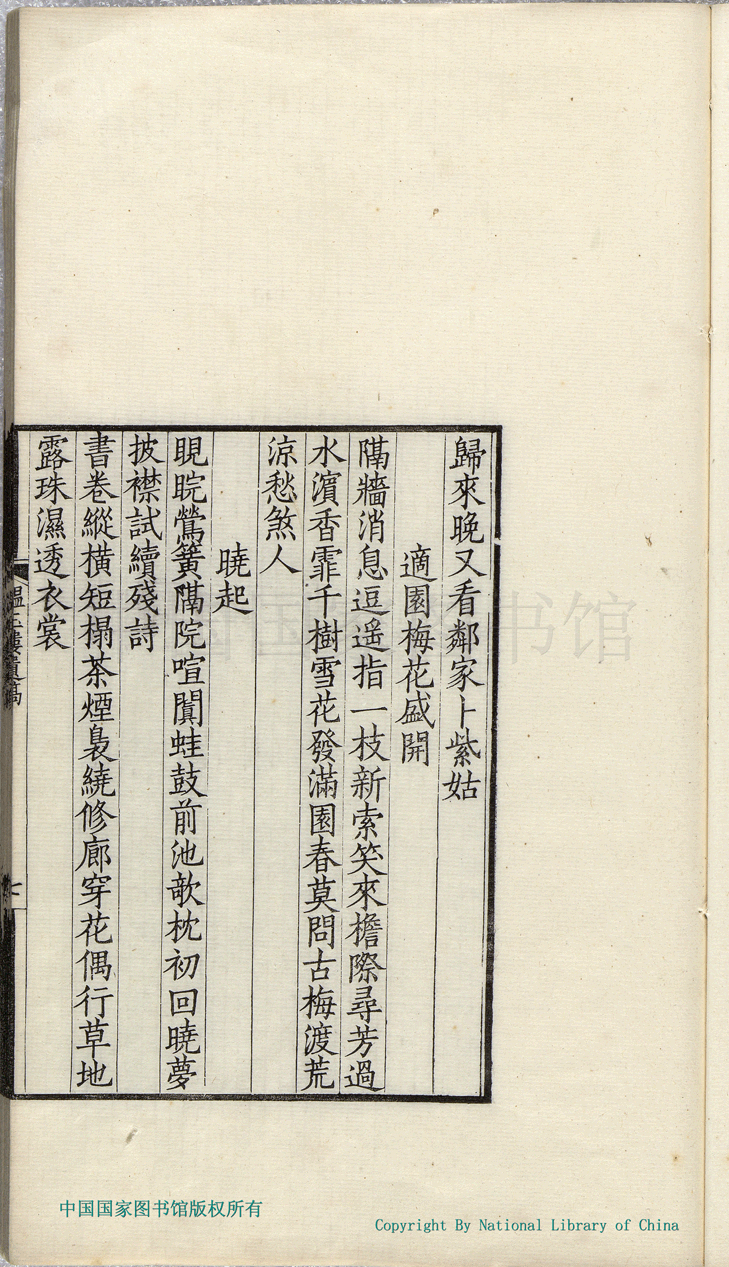 歸來晚又看鄰家卜紫姑
適園梅花盛開
隔牆消息逗遥指一枝新索笑來檐際尋芳過
水濱香霏千樹雪花發滿園春莫問古梅渡荒
涼愁煞人
曉起
睍睆鶯簧隔院喧闐蛙鼓前池欹枕初回曉夢
披襟試續殘詩
書卷縱橫短榻茶煙裊繞修廊穿花偶行草地
露珠濕透衣裳
七
中国国家图书馆
中国国家图书馆版权所有
Copyright By National Library of China